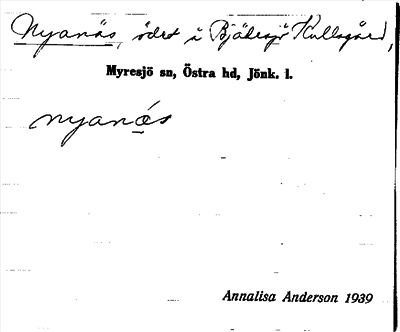 Nyanäs, ödet i Bjädesjö Kullsgård,
Myresjö sn, Östra hd, Jönk. l.
nyanǽs
Annalisa Anderson 1939